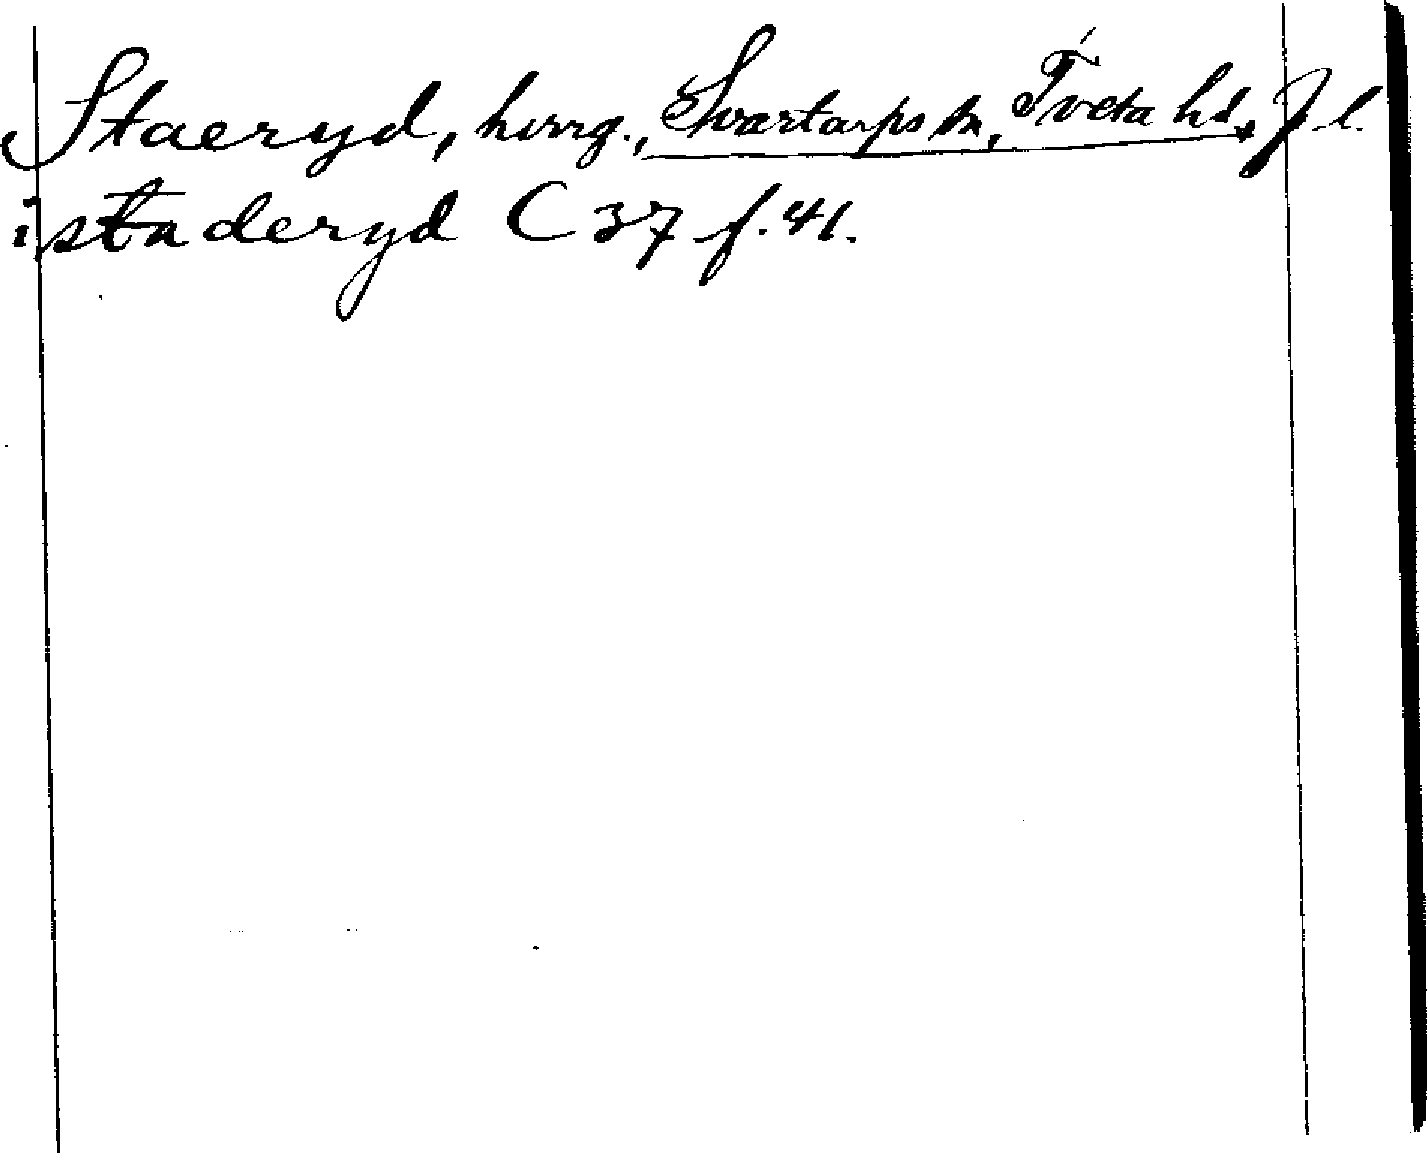 Staeryd, herrg., Svartarps sn, Tveta hd, J.l.
i staderyd C 37 f. 41.